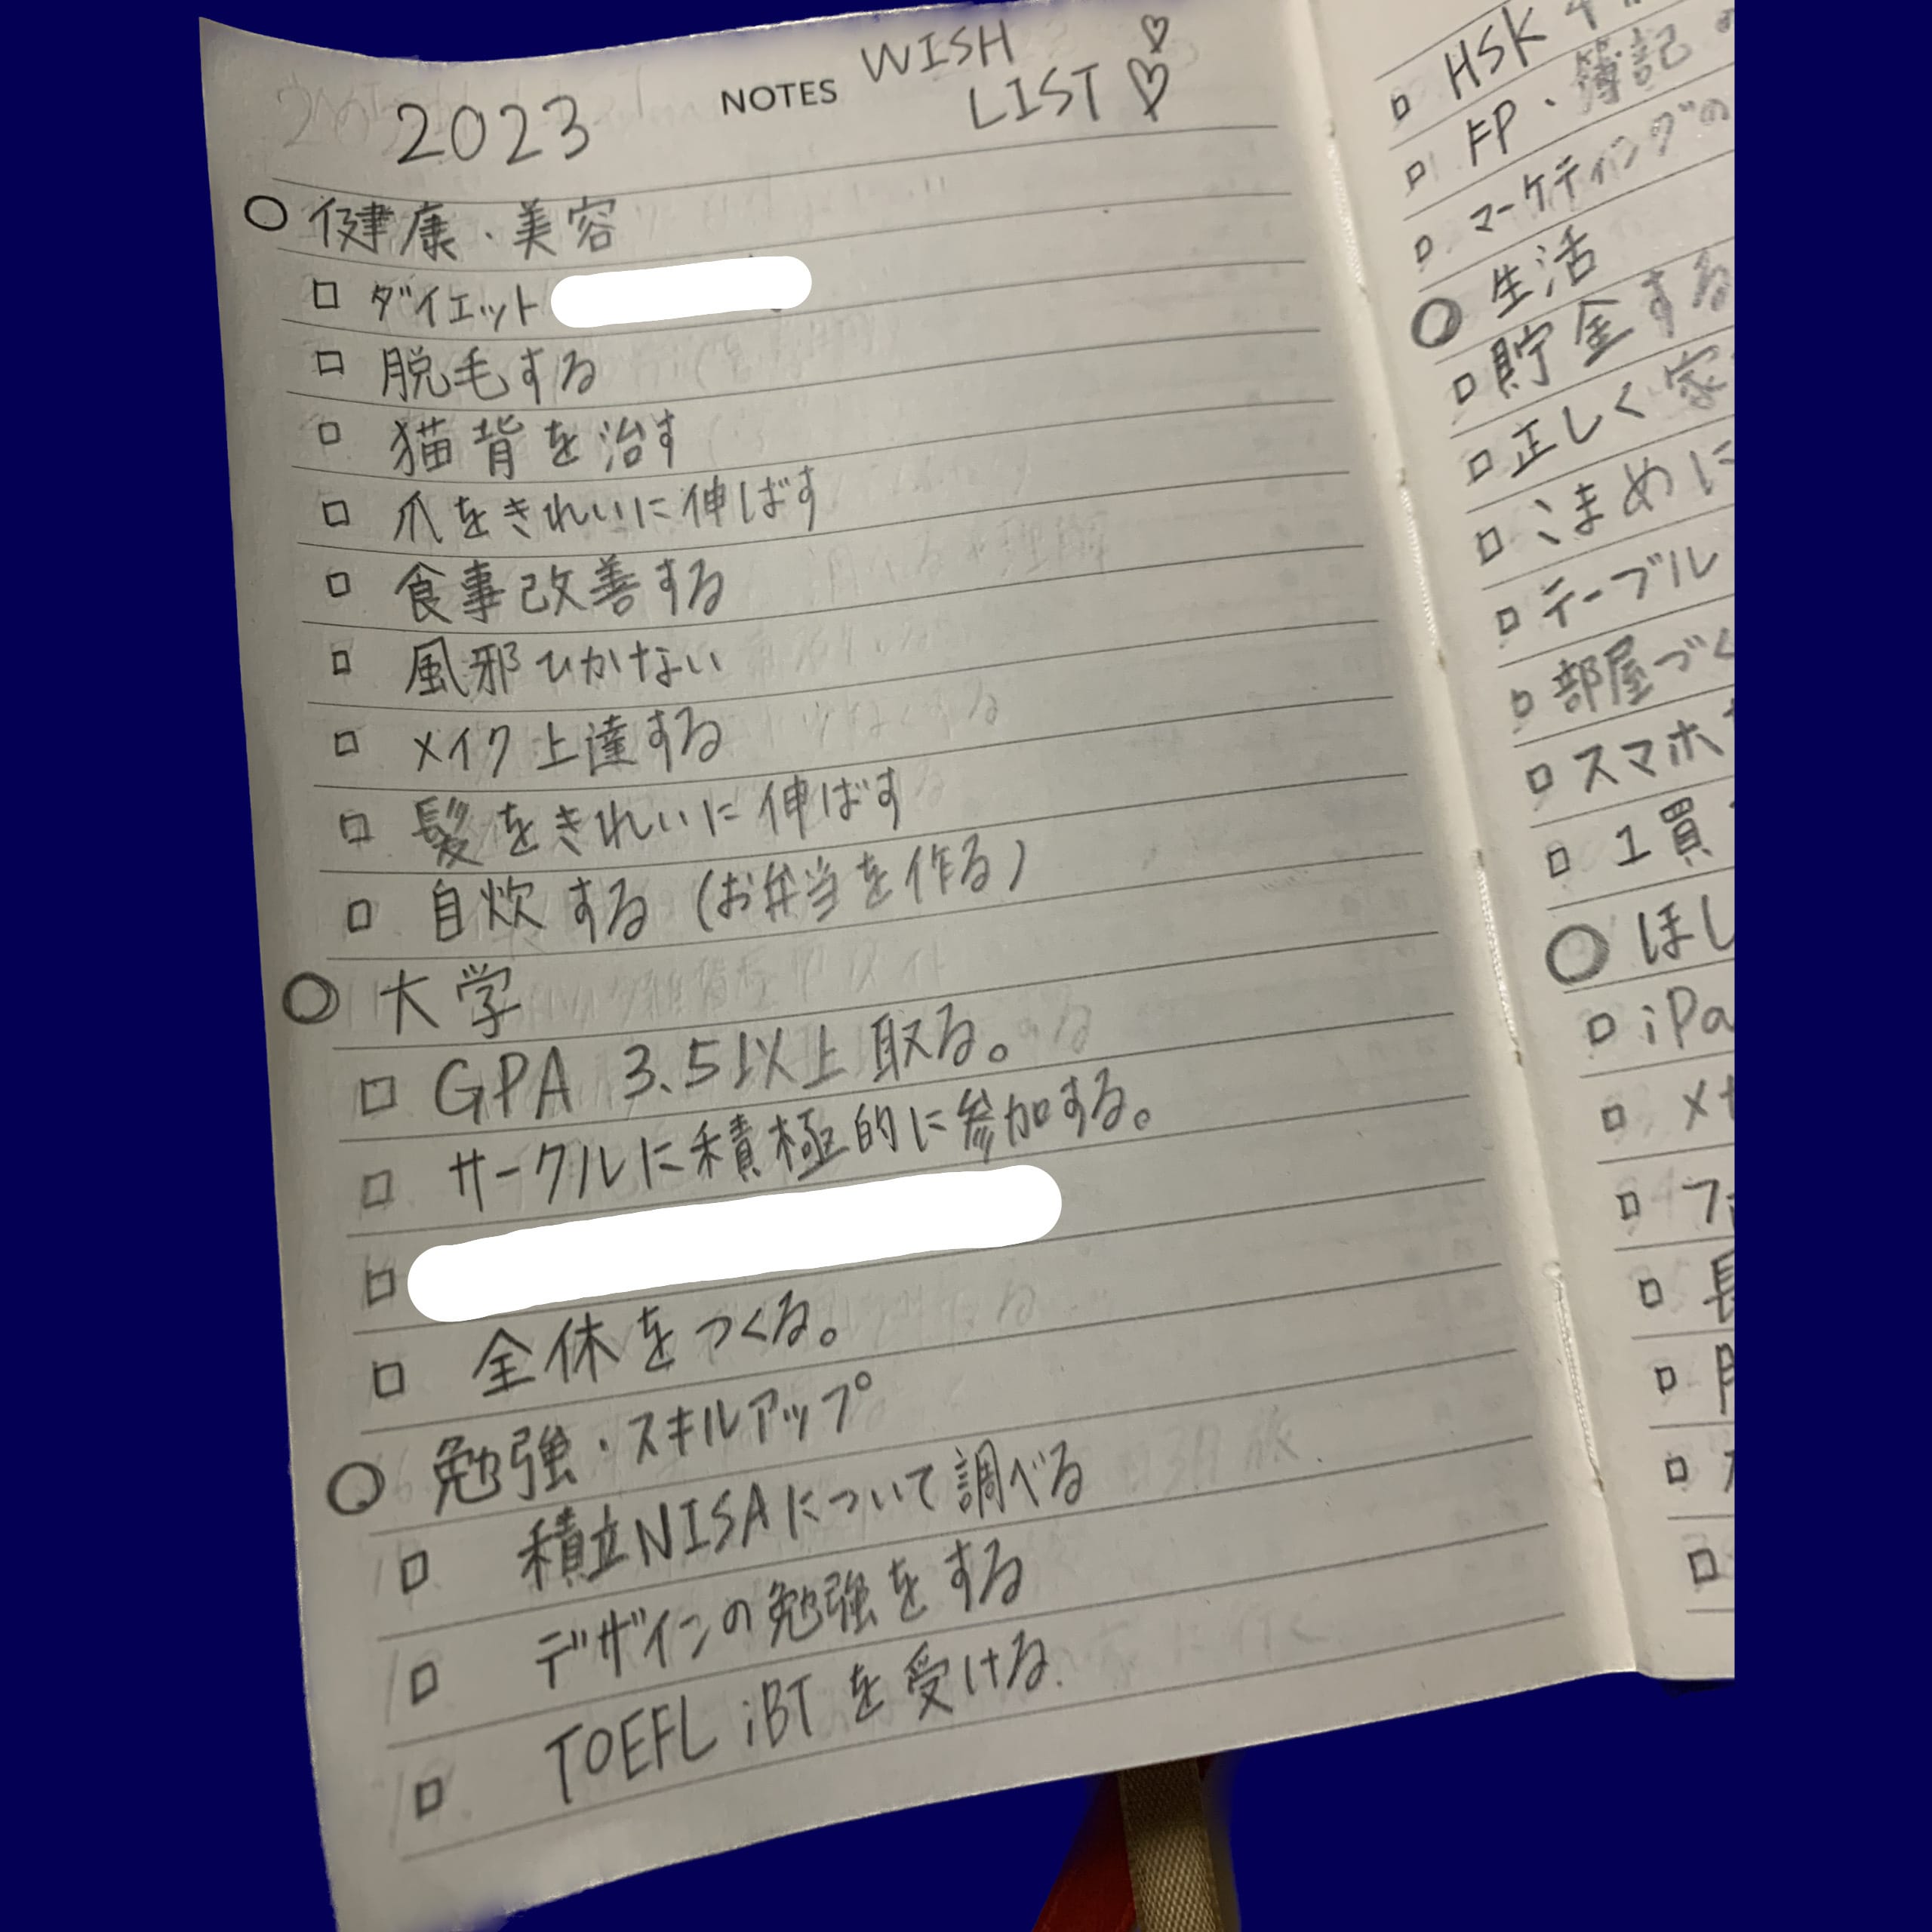 2023
NOTES
WISH
LIST♡
○ 健康・美容
□ ダイエット
□ 脱毛する
□ 猫背を治す
□ 爪をきれいに伸ばす
□ 食事改善する
□ 風邪ひかない
□ メイク上達する
□ 髪をきれいに伸ばす
□ 自炊する(お弁当を作る)
○ 大学
□ GPA 3.5以上取る。
□ サークルに積極的に参加する。
□
□ 全休をつくる。
○ 勉強・スキルアップ
□ 積立NISAについて調べる
□ デザインの勉強をする
□ TOEFL iBTを受ける
□ HSK
□ FP、簿記
□ マーケティングの
○ 生活
□ 貯金する
□ 正しく家
□ こまめに
□ テーブル
□ 部屋づく
□ スマホ
□ 1買
○ ほし
□ iPa
□ メ
□
□ 長
□
□
□